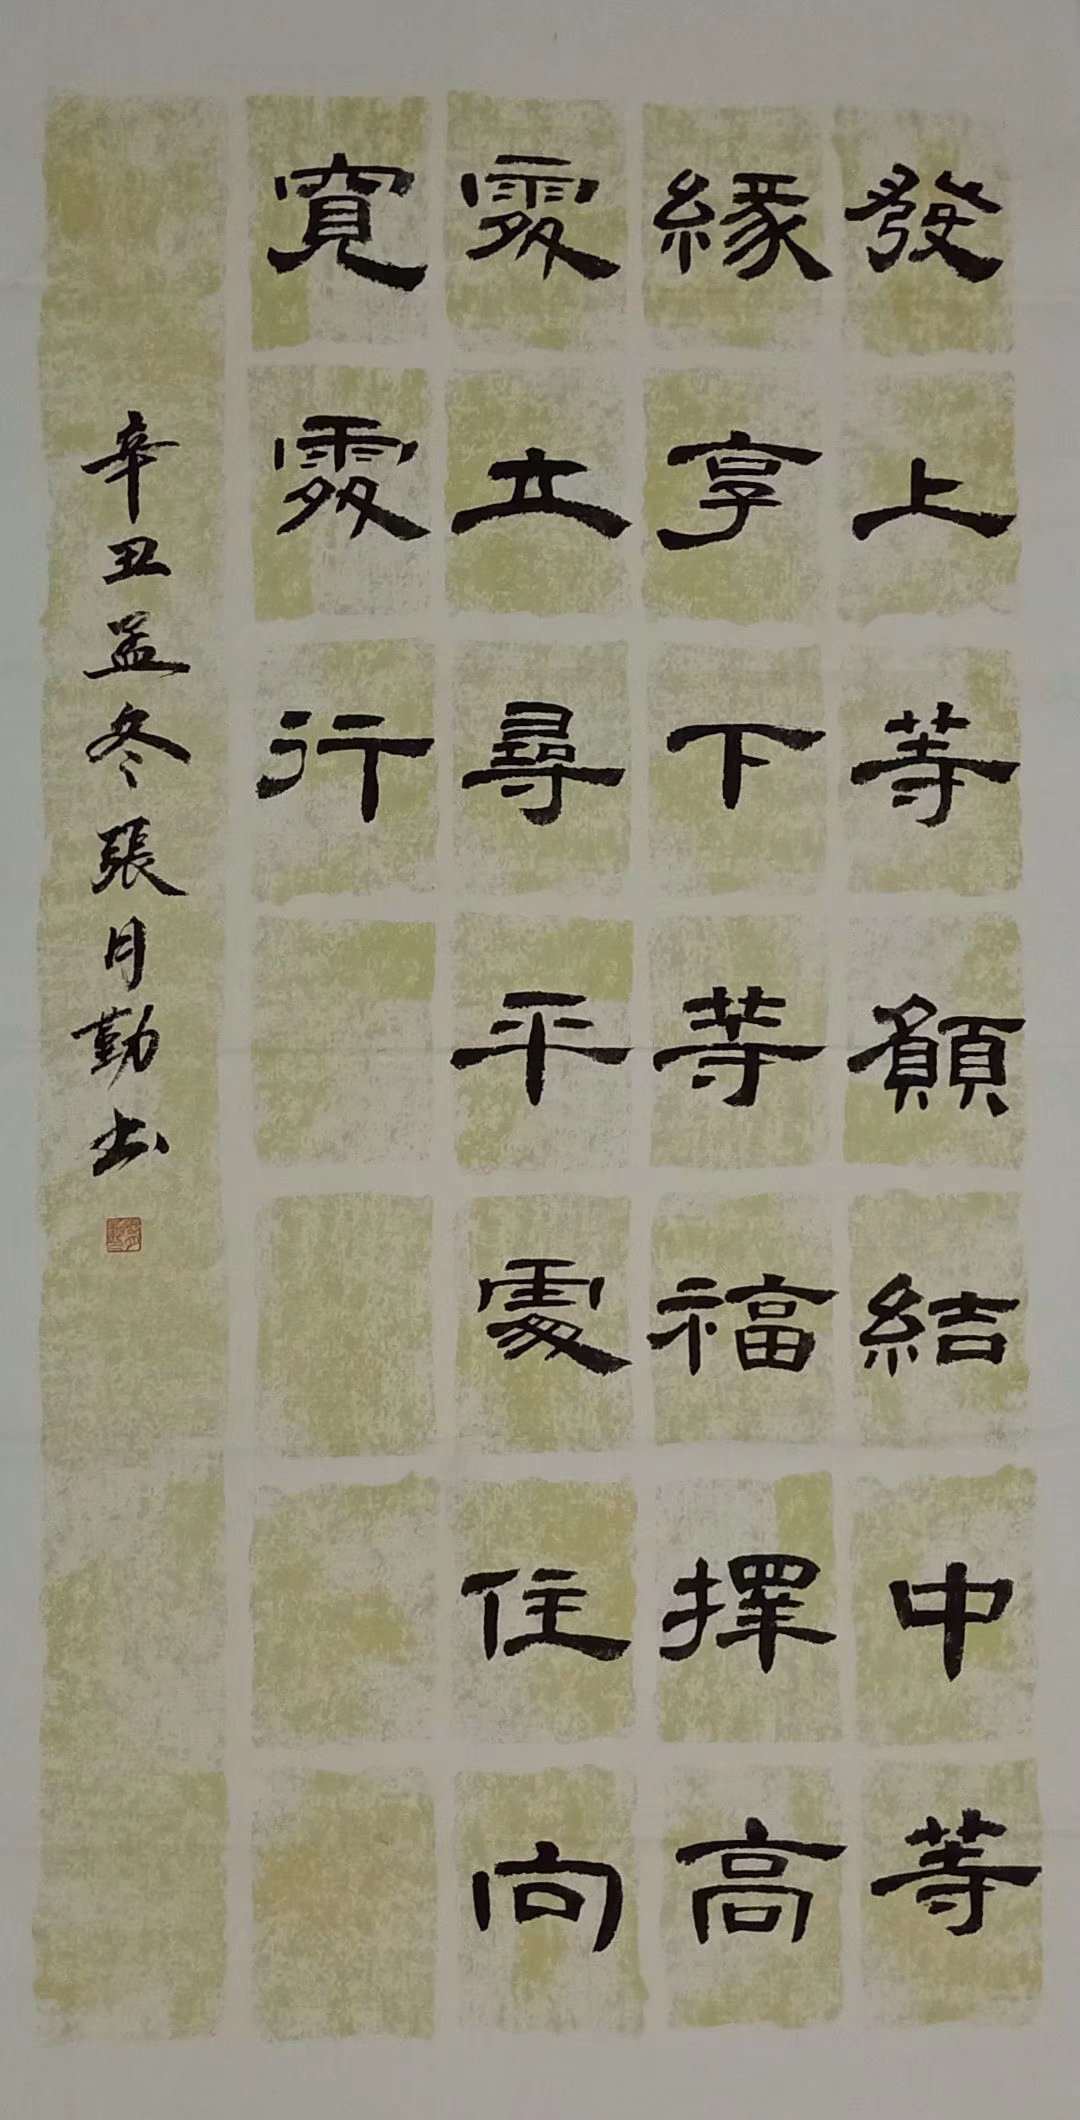 發上等願結中等
緣享下等福擇高
處立尋平處住向
寬處行
辛丑孟冬張月勤书